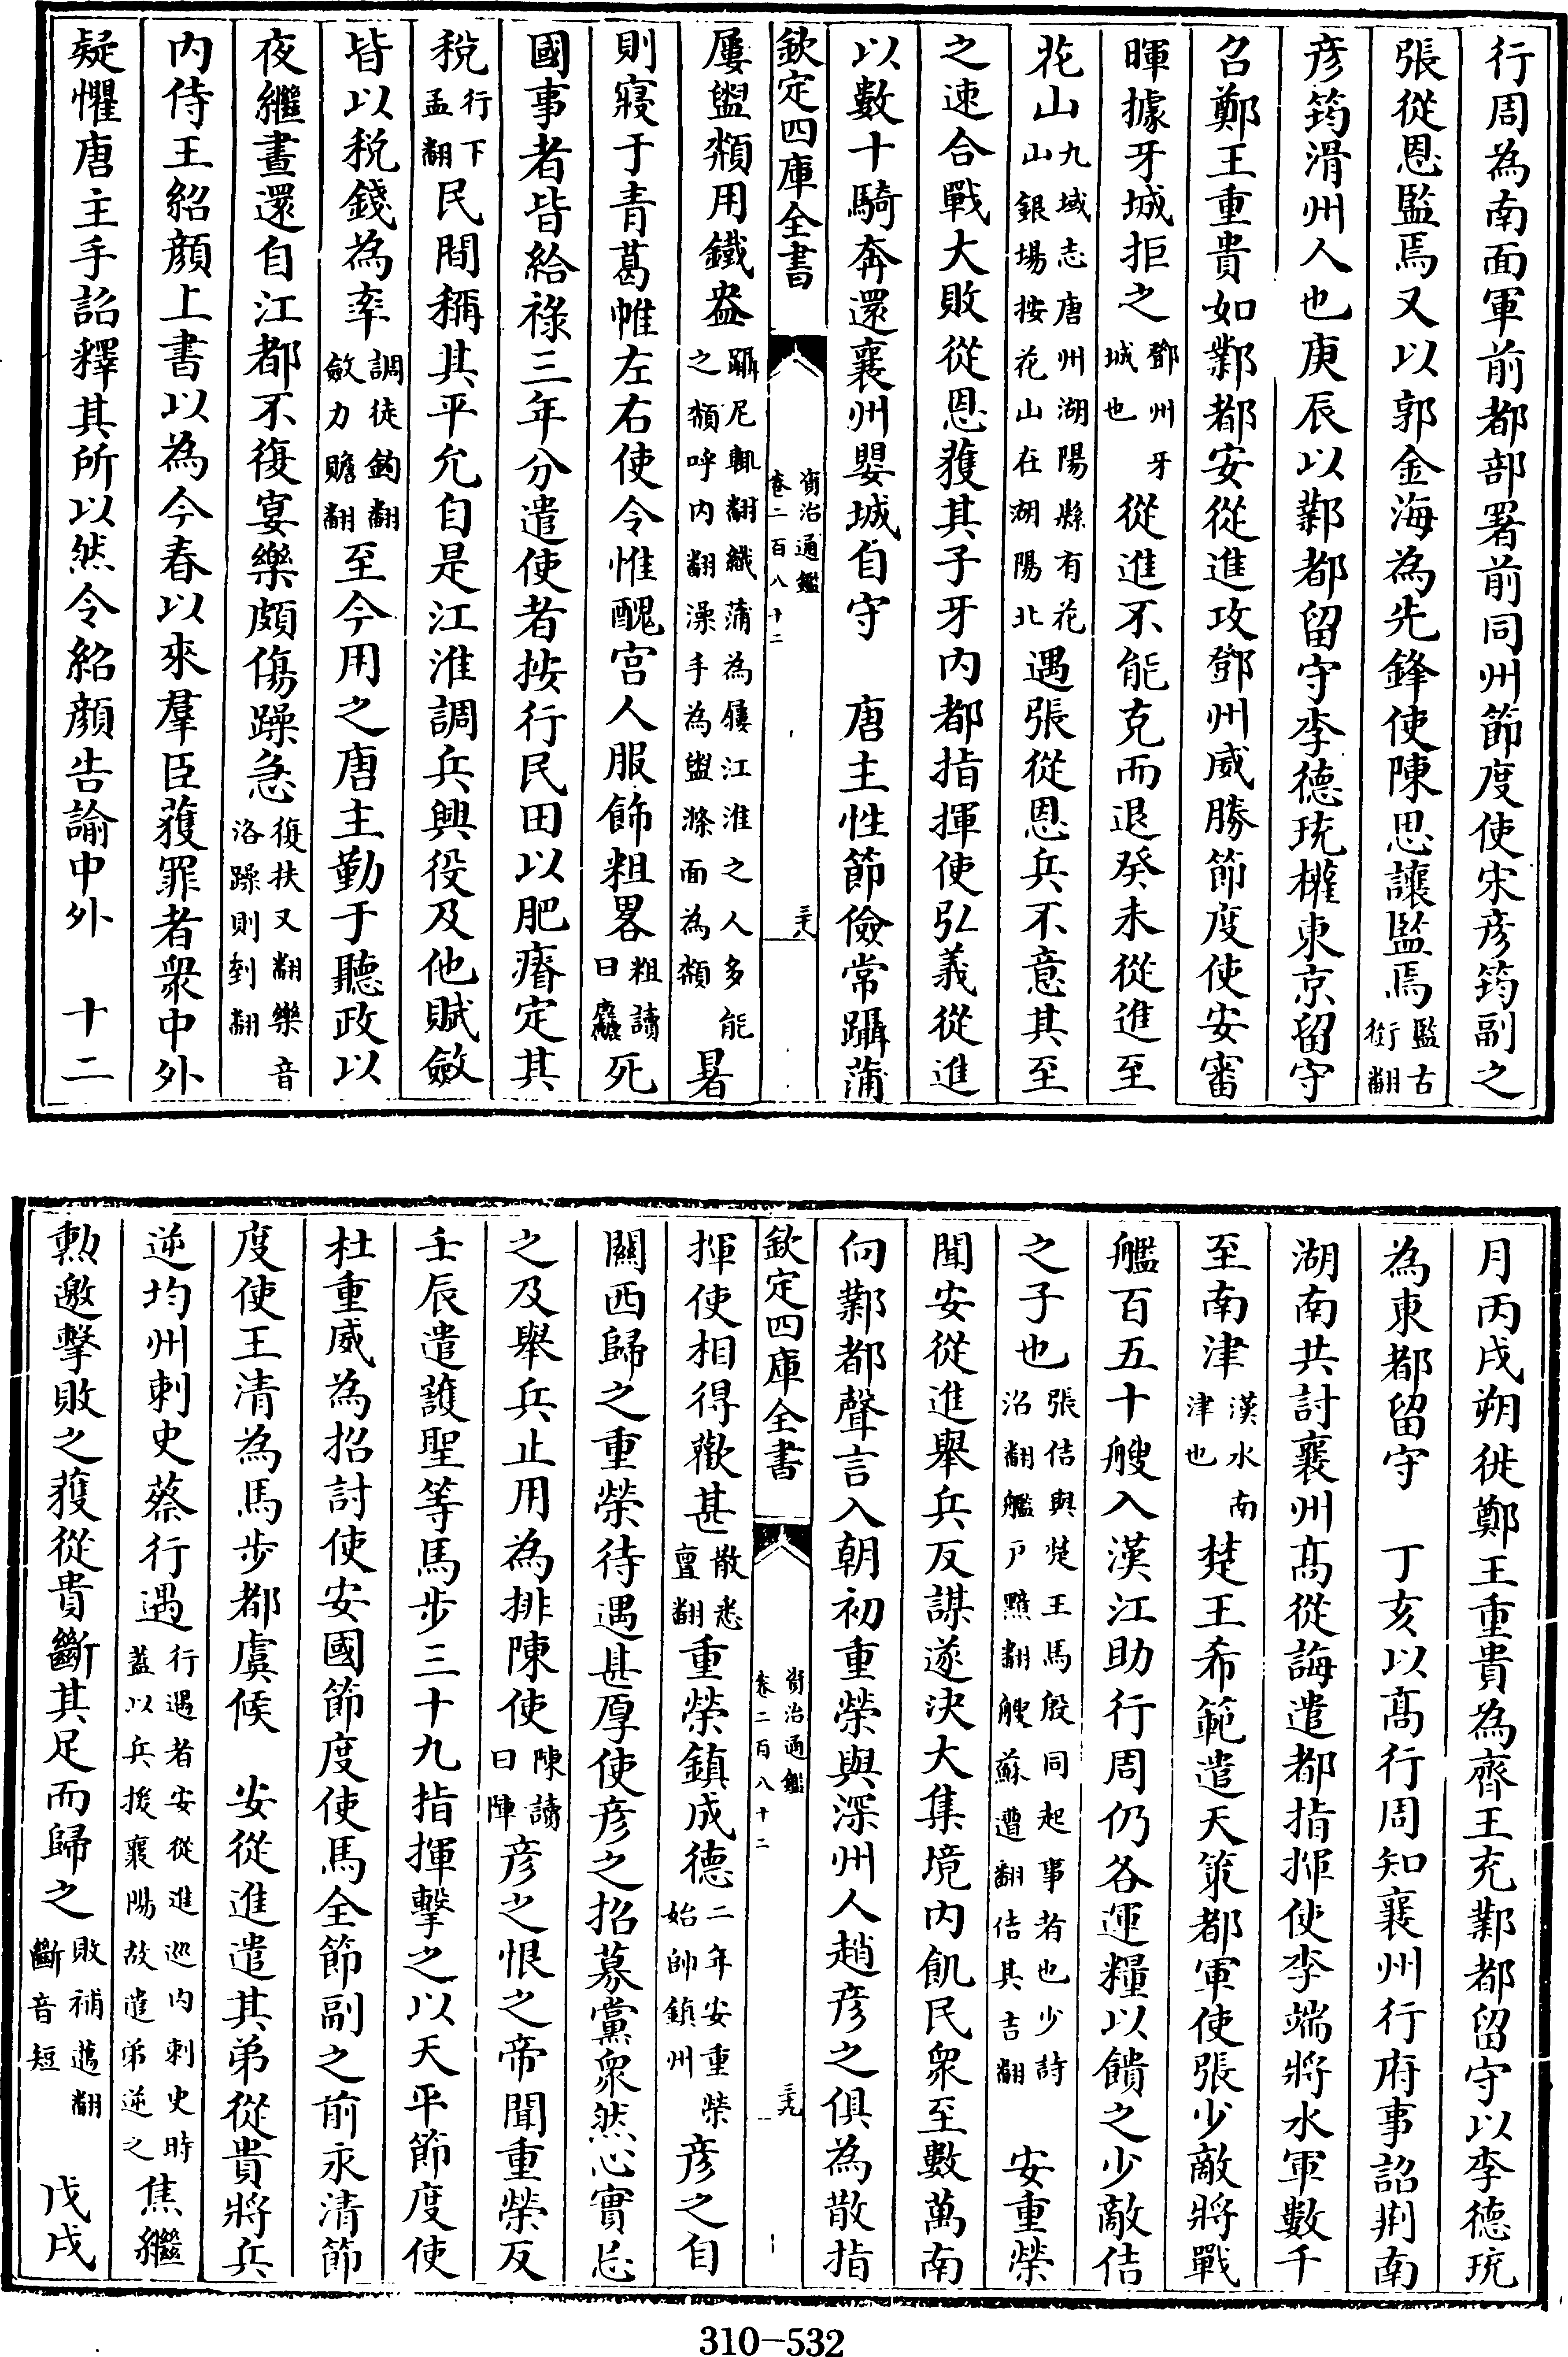 行周為南面軍前都部署前同州節度使宋彦筠副之
張從恩監焉又以郭金海為先鋒使陳思讓監焉監古銜翻
彦筠滑州人也庚辰以鄴都留守李德珫權東京留守
召鄭王重貴如鄴都安從進攻鄧州威勝節度使安審
暉據牙城拒之鄧州牙城也從進不能克而退癸未從進至
花山九域志唐州湖陽縣有花山銀場按花山在湖陽北遇張從恩兵不意其至
之速合戰大敗從恩獲其子牙內都指揮使弘義從進
以數十騎奔還襄州嬰城自守　唐主性節儉常躡蒲
欽定四庫全書　資治通鑑卷二百八十二　三八
屨盥頮用鐵盎躡尼輒翻織蒲為屨江淮之人多能之頮呼內翻澡手為盥滌面為頮暑
則寢于青葛帷左右使令惟醜宮人服飾粗畧粗讀曰麤死
國事者皆給祿三年分遣使者按行民田以肥瘠定其
稅行下孟翻民間稱其平允自是江淮調兵興役及他賦斂
皆以稅錢為率調徒釣翻斂力贍翻至今用之唐主勤于聽政以
夜繼晝還自江都不復宴樂頗傷躁急復扶又翻樂音洛躁則到翻
内侍王紹顔上書以為今春以來羣臣獲罪者衆中外
疑懼唐主手詔釋其所以然令紹顔告諭中外　十二
月丙戌朔徙鄭王重貴為齊王充鄴都留守以李德珫
為東都留守　丁亥以高行周知襄州行府事詔荆南
湖南共討襄州高從誨遣都指揮使李端將水軍數千
至南津漢水南津也楚王希範遣天策都軍使張少敵將戰
艦百五十艘入漢江助行周仍各運糧以饋之少敵佶
之子也張佶與楚王馬殷同起事者也少詩沼翻艦户黯翻艘蘇遭翻佶其吉翻　安重榮
聞安從進舉兵反謀遂決大集境内飢民衆至數萬南
向鄴都聲言入朝初重榮與深州人趙彦之俱為散指
欽定四庫全書　資治通鑑卷二百八十二　三九
揮使相得歡甚散悉亶翻重榮鎮成德二年安重榮始帥鎮州彦之自
關西歸之重榮待遇甚厚使彦之招募黨衆然心實忌
之及舉兵止用為排陳使陳讀曰陣彦之恨之帝聞重榮反
壬辰遣護聖等馬步三十九指揮擊之以天平節度使
杜重威為招討使安國節度使馬全節副之前永清節
度使王清為馬步都虞候　安從進遣其弟從貴將兵
逆均州刺史蔡行遇行遇者安從進巡内刺史時蓋以兵援襄陽故遣弟逆之焦繼
勲邀擊敗之獲從貴斷其足而歸之敗補邁翻斷音短　戊戌
310-532